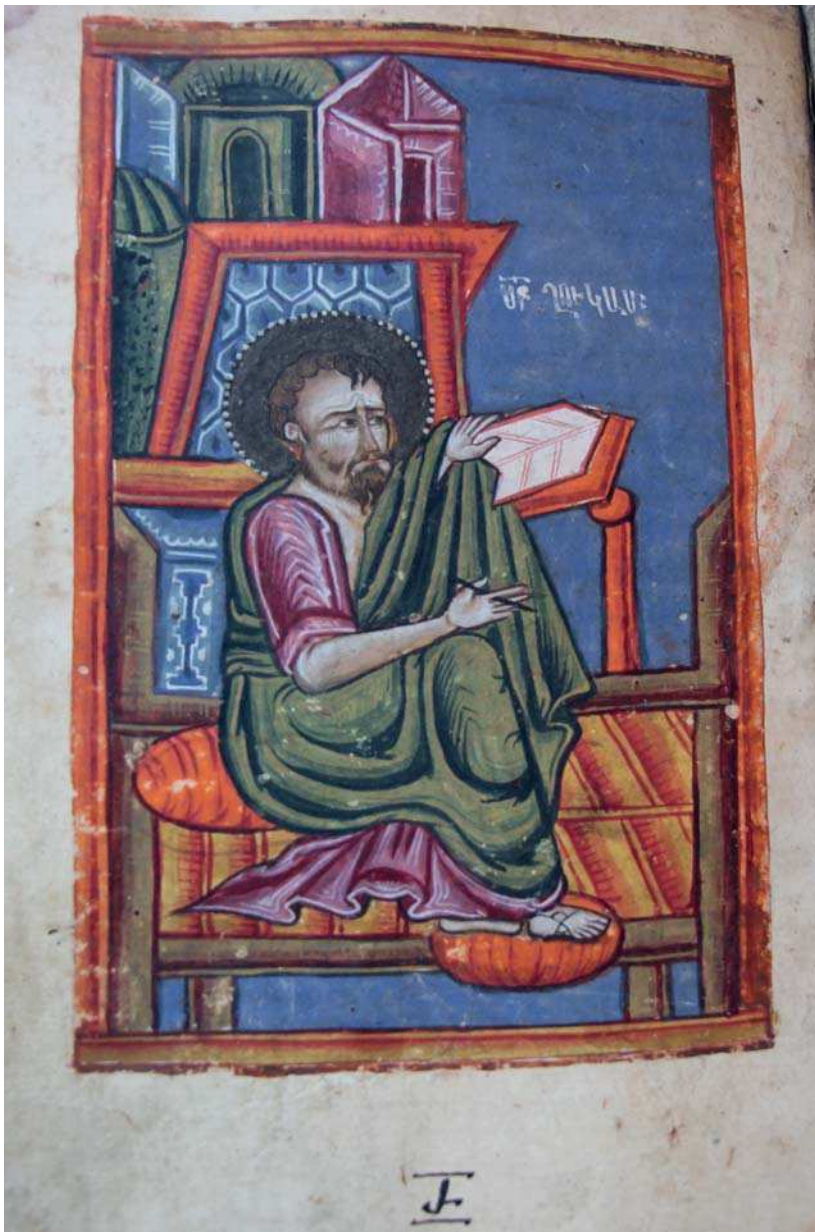 ՍԲ ՂՈՒԿԱՍ։